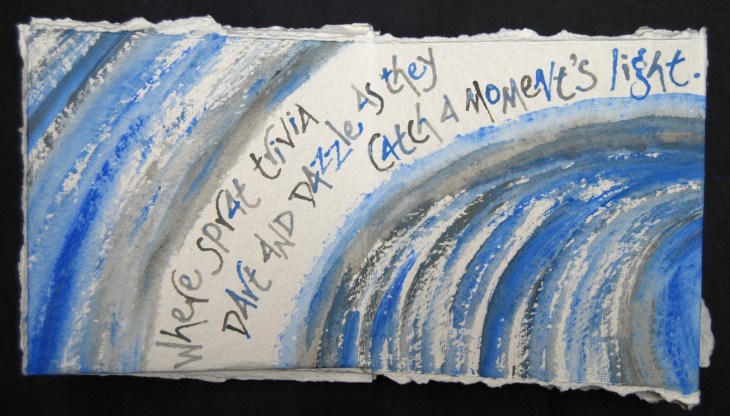 where sprat trivia
DARt AND DAZZLE AS they
CAtch A MOMENt'S light.